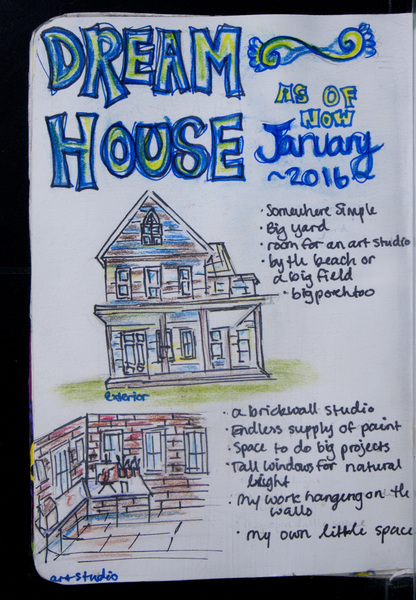 DREAM
HOUSE
AS OF
NOW
January
~2016~
· Somewhere simple
· Big yard
· room for an art studio
· by the beach or
a big field
· big porch too
exterior
· a brickwall studio
· Endless supply of paint
· Space to do big projects
· Tall windows for natural
light
· My work hanging on the
walls
· my own little space
art studio